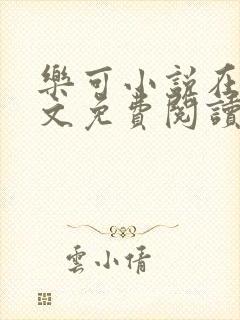 樂可小說在
文免費閱讀
雲小倩